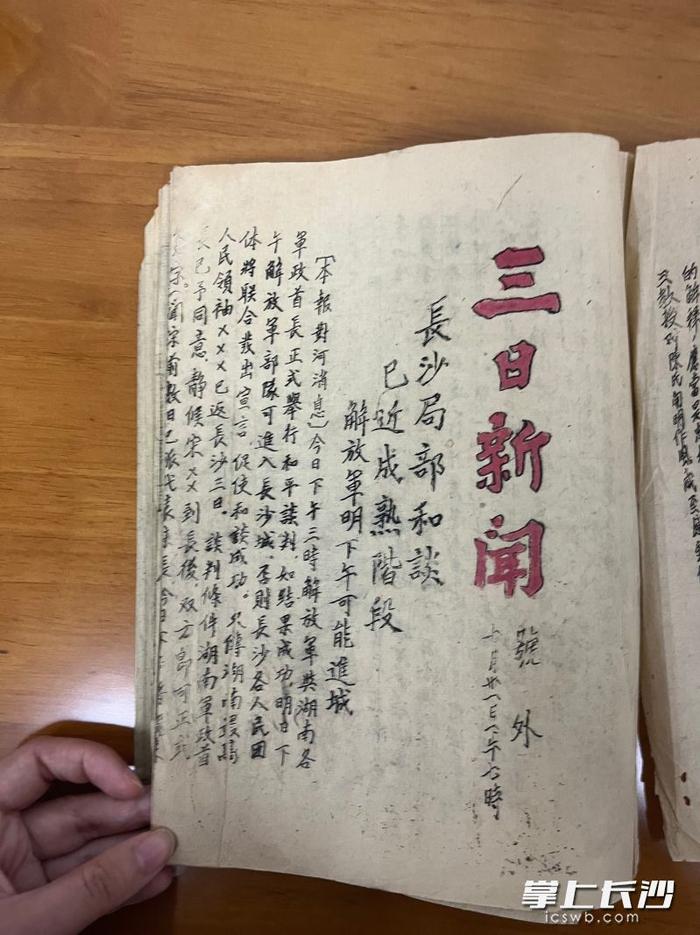 三日新聞
號外
長沙局部和談
已近成熟階段
解放軍明下午可能進城
〔本報對河消息〕今日下午三時解放軍與湖南各
軍政首長正式舉行和平談判，如結果成功，明日下
午解放軍部隊可進入長沙城，否則長沙各人民團
体將聯合發出宣言促使和談成功。又傳湖南最高
人民領袖×××已返長沙三日。談判條件湖南軍政首
長已予同意，靜候宋××到長後，双方即可正式
聞宋前數日已派代表
掌上长沙
icswb.com